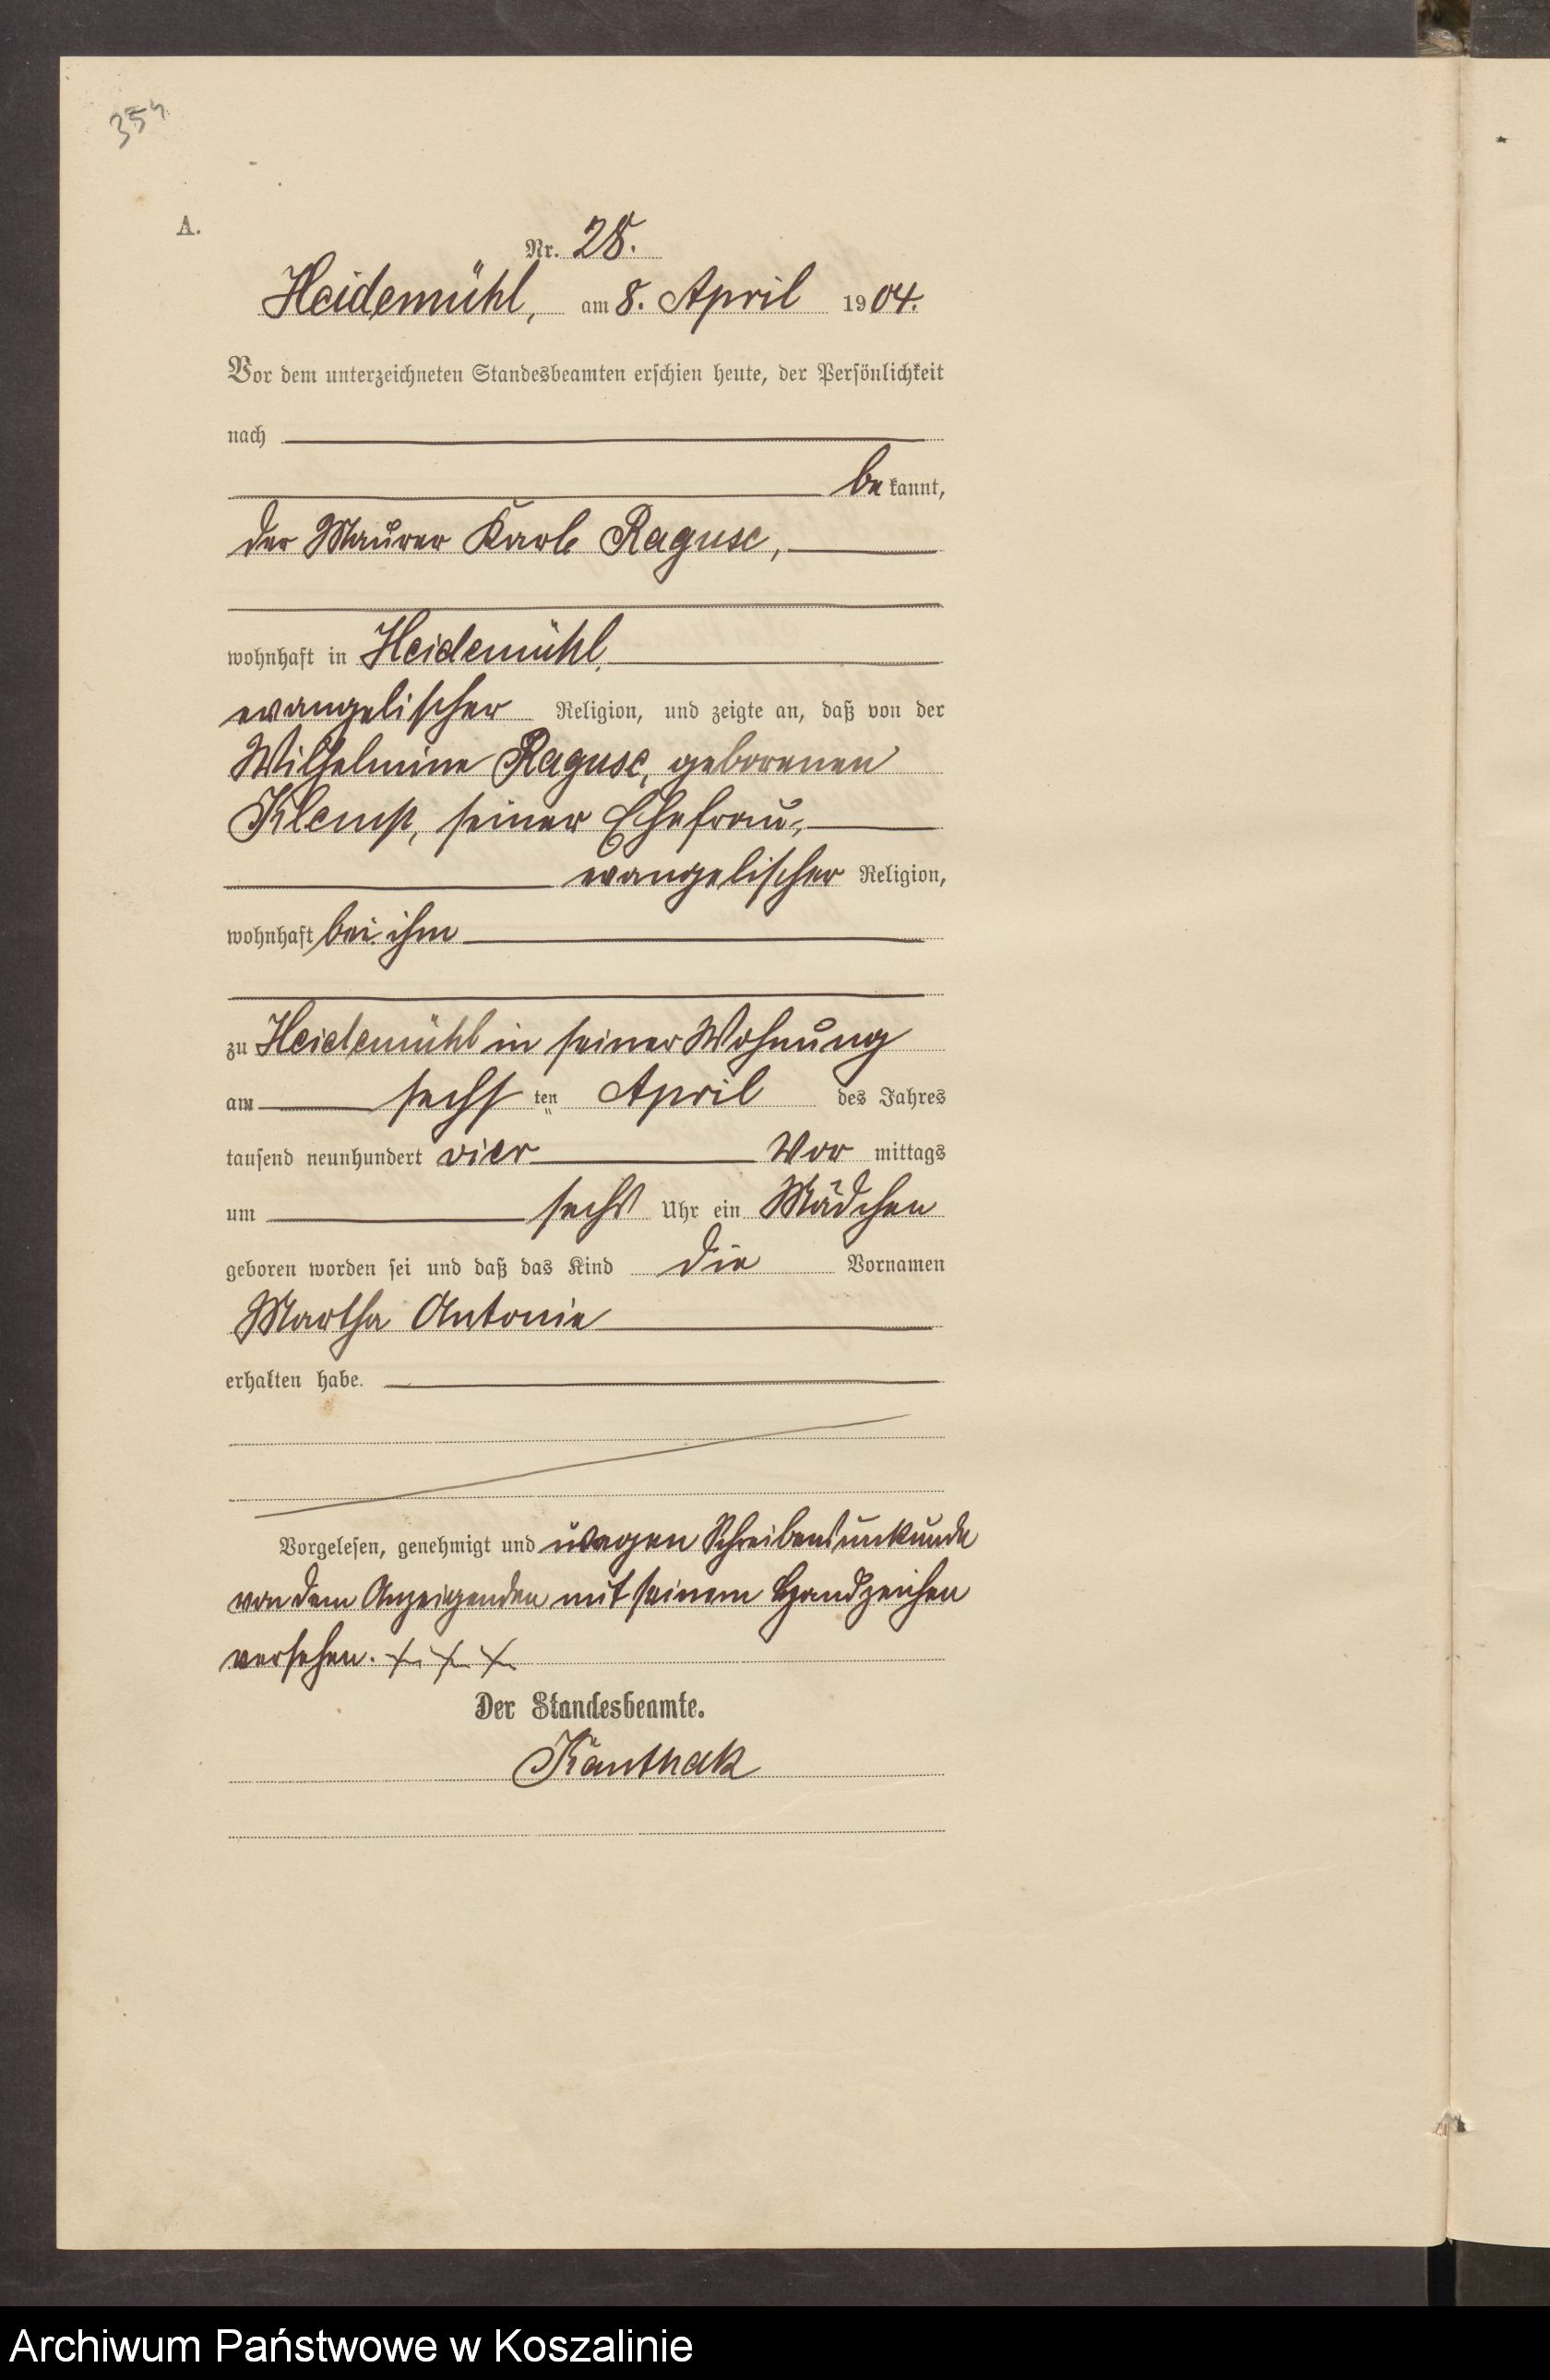 354
A.
Nr. 28.
Heidemühl, am 8. April 1904.
Vor dem unterzeichneten Standesbeamten erschien heute, der Persönlichkeit
nach
bekannt,
der Maurer Karl Raguse,
wohnhaft in Heidemühl,
evangelischer Religion, und zeigte an, daß von der
Wilhelmine Raguse, geborenen
Klemp, seiner Ehefrau,
evangelischer Religion,
wohnhaft bei ihm
zu Heidemühl in seiner Wohnung
am sechsten April des Jahres
tausend neunhundert vier Vor mittags
um sechs Uhr ein Mädchen
geboren worden sei und daß das Kind die Vornamen
Martha Antonie
erhalten habe.
Vorgelesen, genehmigt und wegen Schreibensunkunde
von dem Anzeigenden mit seinem Handzeichen
versehen. + + +
Der Standesbeamte.
Archiwum Państwowe w Koszalinie